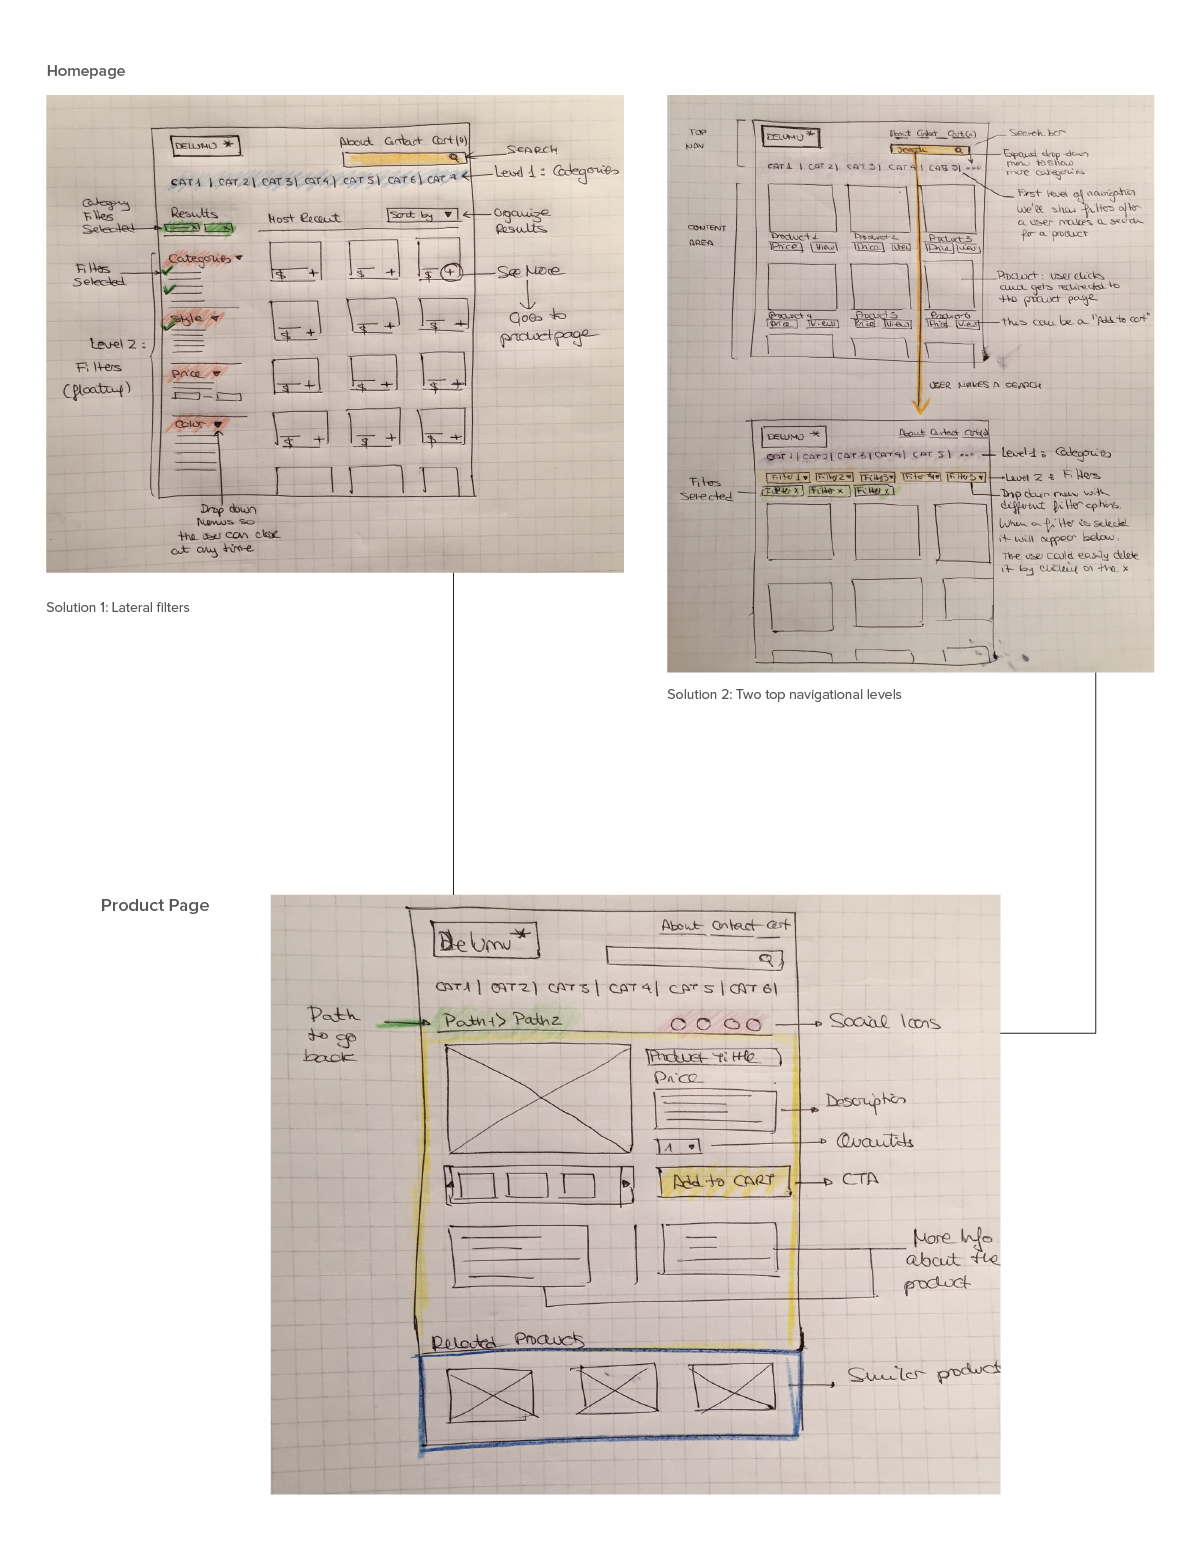 Homepage
DELUMU *
About Contact Cart(0)
SEARCH
CAT 1 | CAT 2| CAT 3| CAT4| CAT 5| CAT 6| CAT
Level 1 : Categories
Category
Filters
Selected
Results
Most Recent
Sort by
Organize
Results
Filters
Selected
Categories
$ + $ + $ +
See More
Goes to
product page
Style
$ + $ + $ +
Level 2 :
Filters
(floating)
Price
$ + $ + $ +
Color
$ + $ + $ +
Drop down
Menus so
the user can close
at any time
Solution 1: Lateral filters
TOP
NAV
DELUMU *
About Contact Cart(0)
Search
Search bar
Expand drop-down
menu to show
more categories
CAT 1 | CAT 2| CAT 3| CAT 4| CAT 5| ...
First level of navigation
we'll show filters after
a user makes a search
for a product
CONTENT
AREA
Product 1 Product 2 Product 3
Price View Price View Price View
Product: user clicks
and gets redirected to
the product page
Product 4 Product 5 Product 6
Price View Price View Price View
this can be a "Add to cart"
USER MAKES A SEARCH
DELUMU *
About Contact Cart
CAT 1| CAT2| CAT 3|CAT4| CAT 5| ...
Level 1 : Categories
Filter 1 Filter 2 Filter 3 Filter 4 Filter 5
Level 2 : Filters
Filters
Selected
Filter x Filter x Filter x
Drop down menu with
different filter options.
When a filter is selected
it will appear below.
The user could easily delete
it by clicking on the x
Solution 2: Two top navigational levels
Product Page
Delumu *
About Contact Cart
CAT1| CAT2| CAT 3| CAT 4| CAT 5| CAT 6|
Path
to go
back
Path1> Path2
Social Icons
Product Tittle
Price
Description
1
Quantity
Add to CART
CTA
More Info
about the
product
Related Products
Similar product